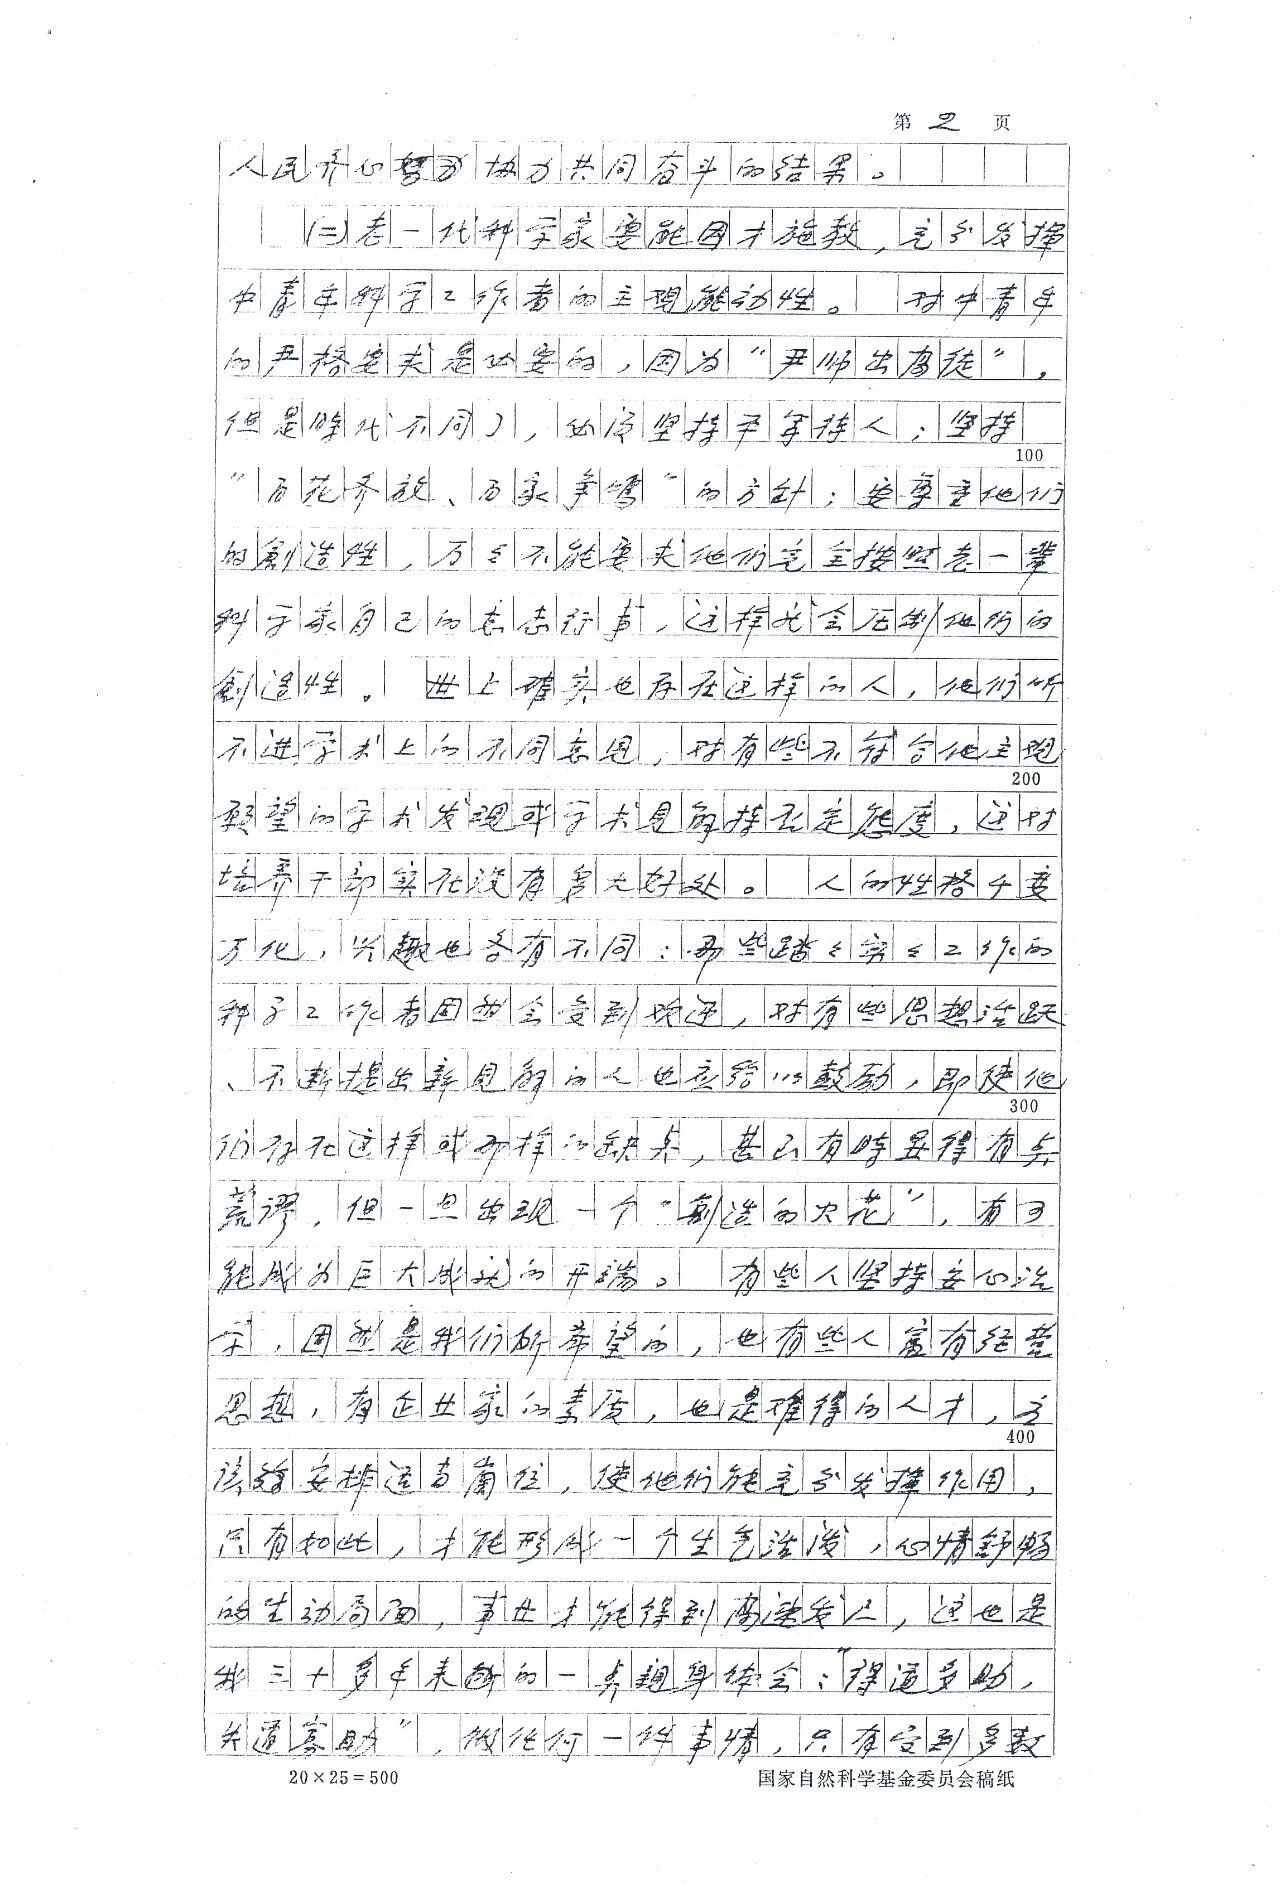 第2页
人民齐心努力协力共同奋斗的结果。
(二)老一代科学家要能因才施教，充分发揮
中青年科学工作者的主观能动性。 对中青年
的严格要求是必要的，因为“严师出高徒”，
但是時代不同了，必须坚持平等待人；坚持
100
“百花齐放、百家争鸣”的方針；要尊重他们
的創造性，万々不能要求他们完全按照老一辈
科学家自己的意志行事，这样就会压制他们的
創造性。 世上確实也存在这样的人，他们听
不进学术上的不同意见，对有些不符合他主观
200
願望的学术发现或学术見解持否定態度，这对
培养干部实在没有多大好处。 人的性格千变
万化，兴趣也各有不同：那些踏々实々工作的
科学工作者固然会受到欢迎，对有些思想活跃
、不断提出新見解的人也应给以鼓励，即使他
300
们存在这样或那样的缺点，甚而有時显得有点
荒谬，但一旦出现一个“創造的火花”，有可
能成为巨大成就的开端。 有些人坚持安心治
学，固然是我们所希望的，也有些人富有经营
思想，有企业家的素质，也是难得的人才，应
400
该安排适当崗位，使他们能充分发揮作用，
只有如此，才能形成一个生气活泼，心情舒畅
的生动局面，事业才能得到高速发展，这也是
我三十多年来的一点親身体会：“得道多助，
失道寡助”，做任何一件事情，只有受到多数
20×25=500
国家自然科学基金委员会稿纸